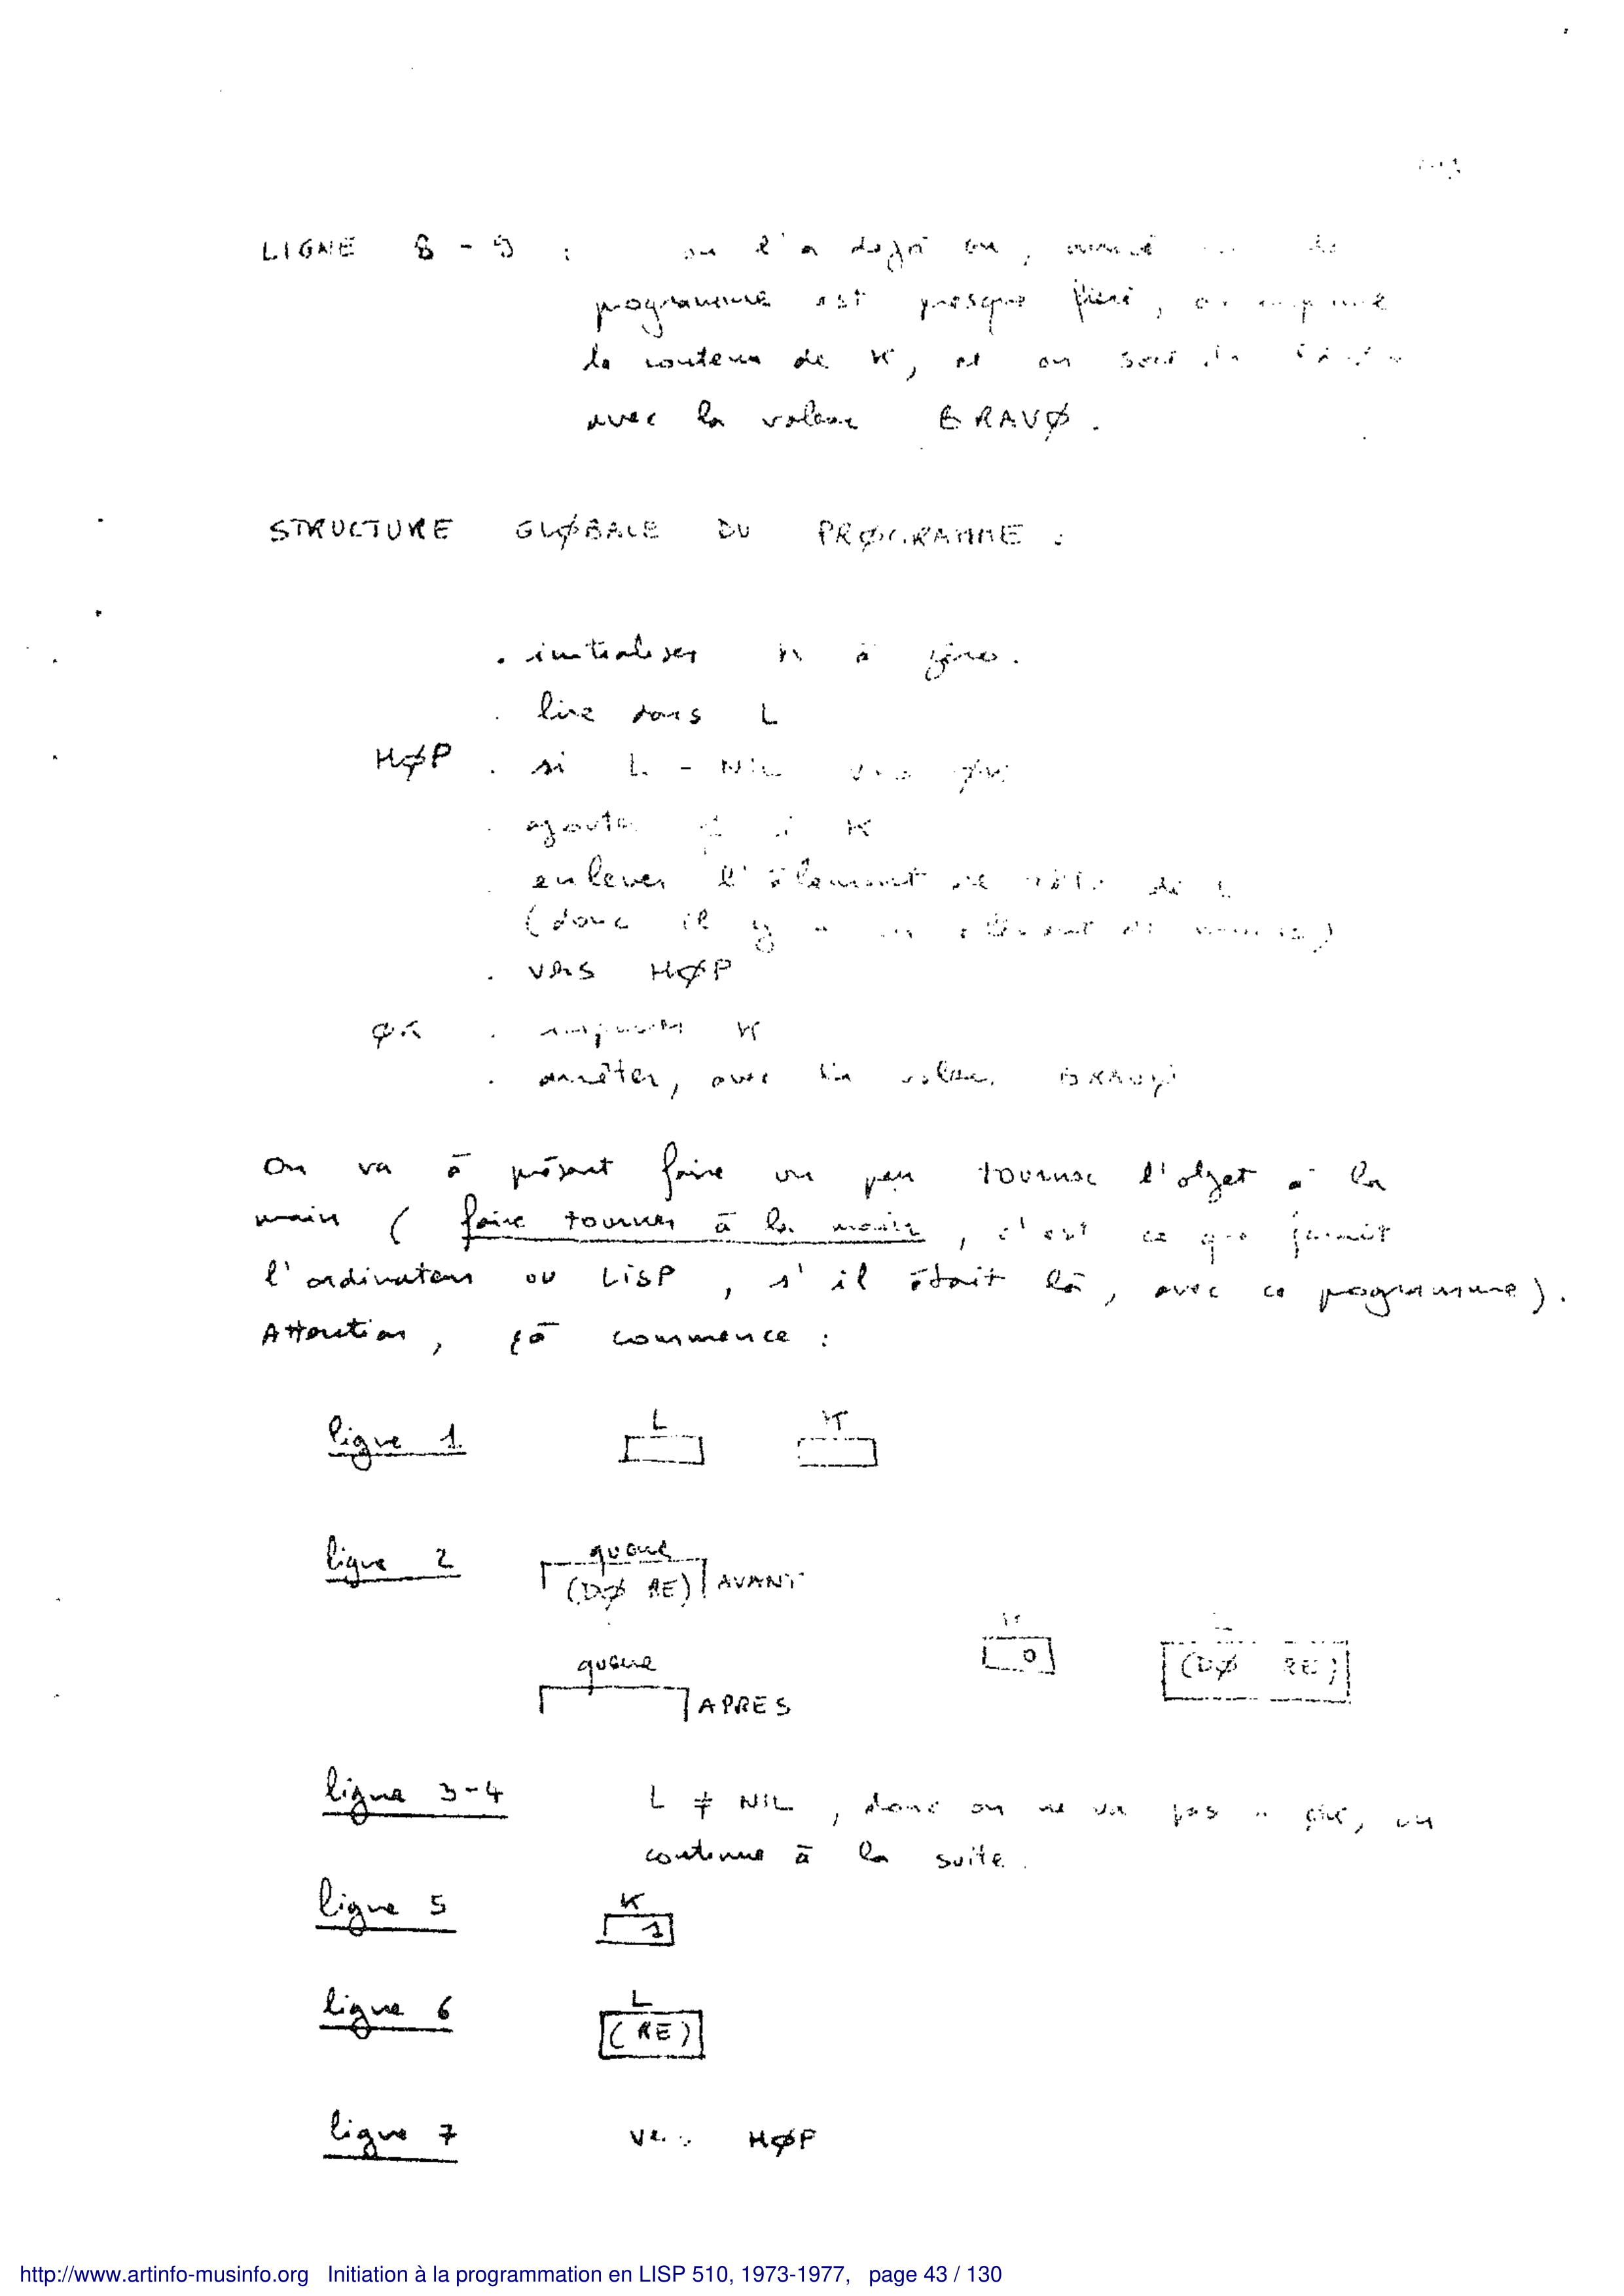 LIGNE 8 - 9 : on l'a déjà vu,
programme est presque fini, on imprime
le contenu de K, et on sort
avec la valeur BRAVØ.
STRUCTURE GLØBALE DU PRØGRAMME :
. initialiser K à zéro.
. lire dans L
HØP . si L = NIL vers ØK
. ajouter 1 à K
. enlever l'élément de tête de L
(donc il y a un élément de moins)
. vers HØP
ØK . imprimer K
. arrêter, avec la valeur BRAVØ
On va à présent faire un peu tourner l'objet à la
main ( faire tourner à la main, c'est ce que ferait
l'ordinateur ou LISP, s'il était là, avec ce programme).
Attention, çà commence :
ligne 1 L K
ligne 2 queue
(DØ RE) AVANT
K L
0 (DØ RE)
queue
APRES
ligne 3-4 L ≠ NIL, donc on ne va pas à ØK, on
continue à la suite.
ligne 5 K
1
ligne 6 L
(RE)
ligne 7 vers HØP
http://www.artinfo-musinfo.org Initiation à la programmation en LISP 510, 1973-1977, page 43 / 130